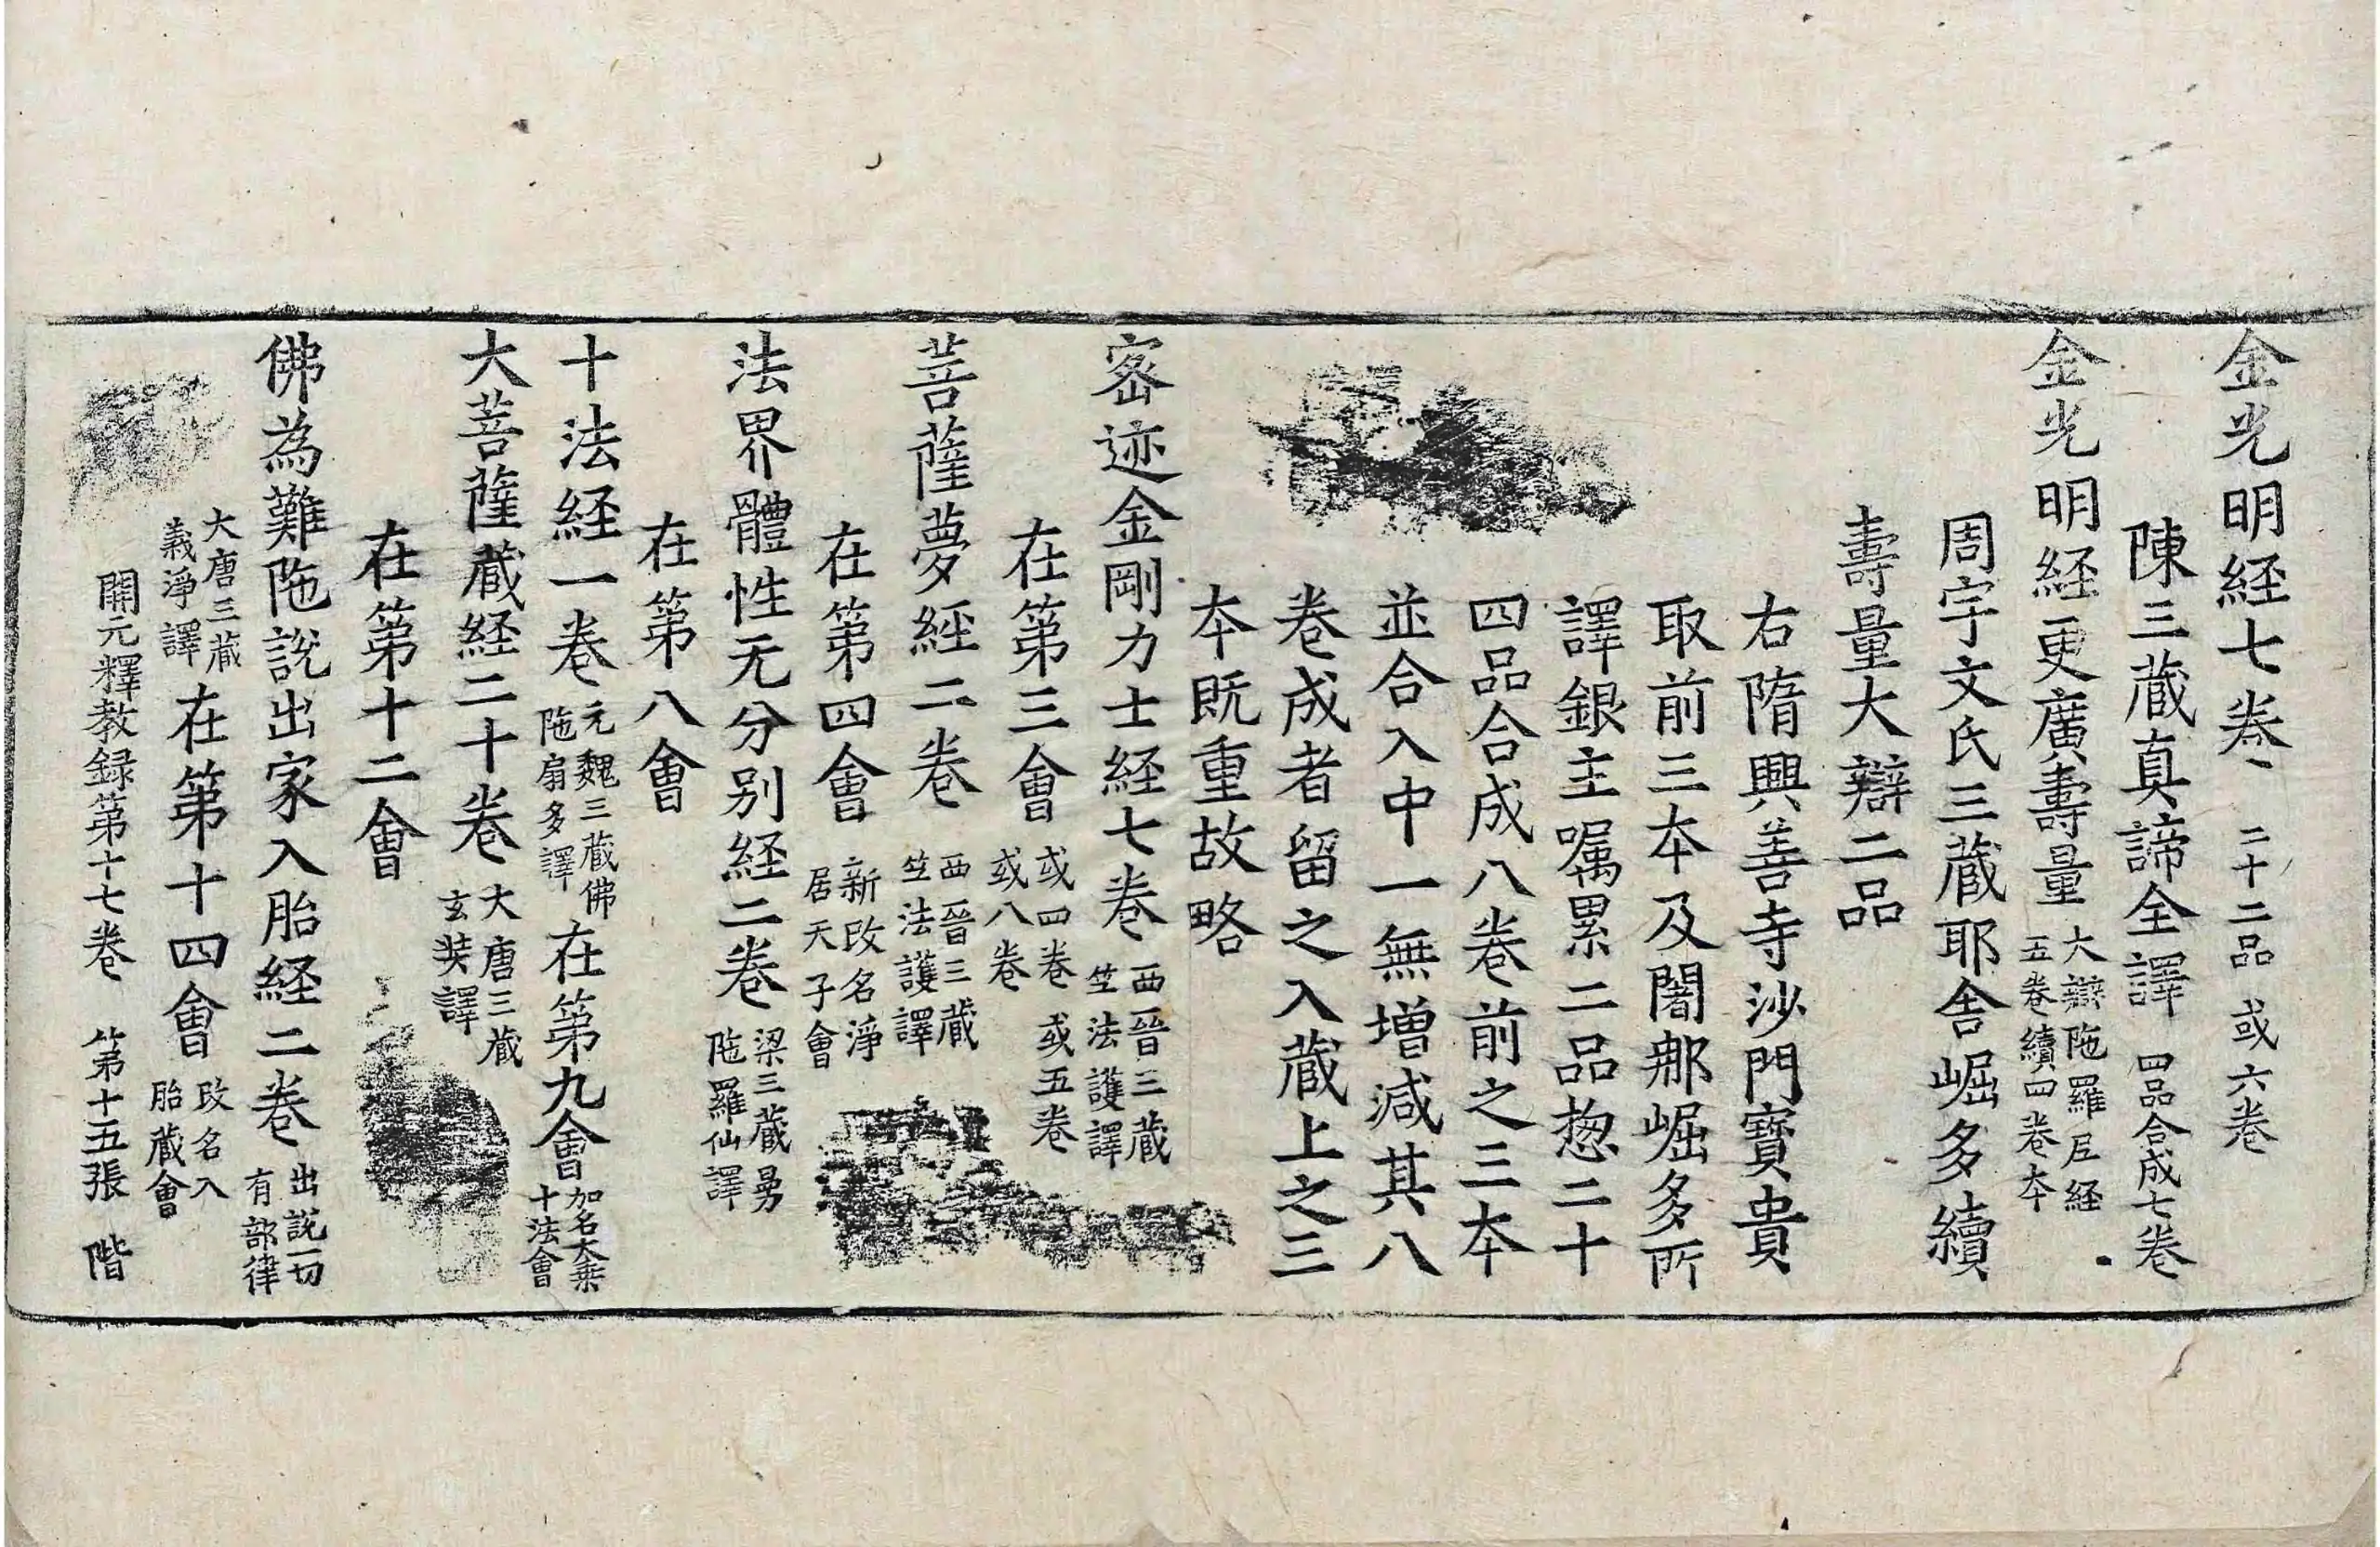 金光明経七卷 二十二品 或六卷
陳三蔵真諦全譯 四品合成七卷
金光明経更廣壽量 大辯陁羅尼経 五卷續四卷夲
周宇文氏三蔵耶舎崛多續
壽量大辯二品
右隋興善寺沙門寶貴
取前三夲及闍𨙻崛多所
譯銀主嘱累二品惣二十
四品合成八卷前之三夲
並合入中一無增減其八
卷成者留之入蔵上之三
夲既重故略
宻迹金剛力士経七卷 西晉三蔵 竺法護譯
在第三會 或四卷 或五卷 或八卷
菩薩夢経二卷 西晉三蔵 竺法護譯
在第四會 新改名淨 居天子會
法界體性无分别経二卷 梁三蔵曼 陁羅仙譯
在第八會
十法経一卷 元魏三蔵佛 陁扇多譯 在第九會 加名大乗 十法會
大菩薩蔵経二十卷 大唐三蔵 玄奘譯
在第十二會
佛為難陁說出家入胎経二卷 出說一切 有部律
大唐三蔵 義淨譯 在第十四會 改名入 胎蔵會
開元釋教録第十七卷 第十五張 階